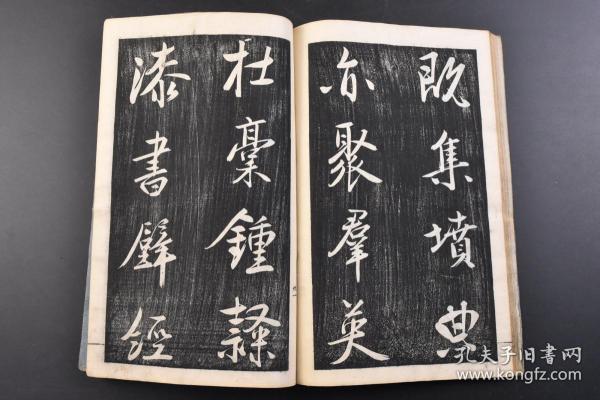 既集墳典
亦聚羣英
杜稾鍾隸
漆書壁經
孔夫子旧書网
www.kongfz.com